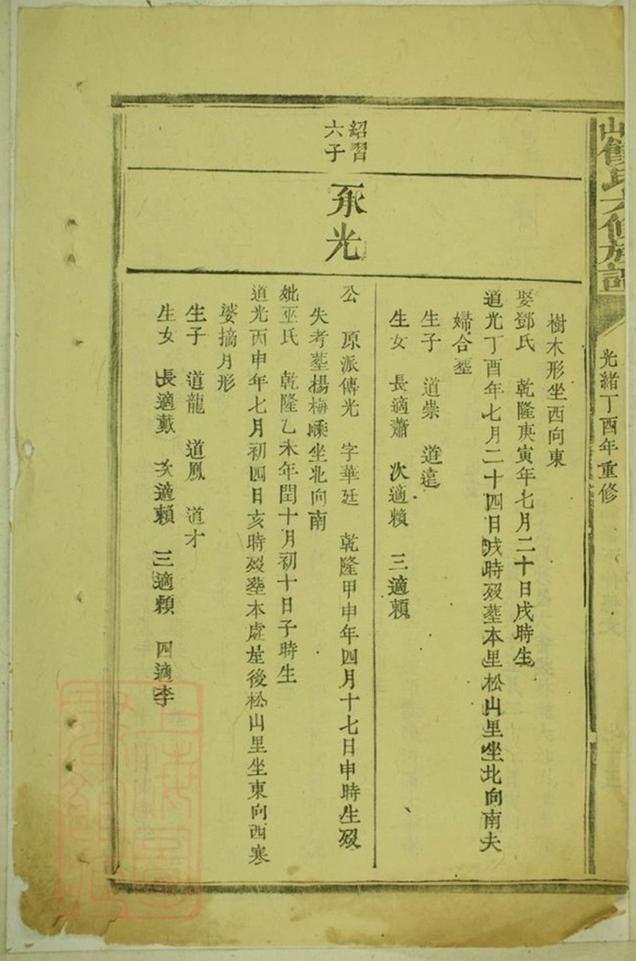 氏六修族譜
光緒丁酉年重修
樹木形坐西向東
娶鄧氏 乾隆庚寅年七月二十日戌時生
道光丁酉年七月二十四日戌時歿塟本里松山里坐北向南夫
婦合塟
生子 道崇 道遠
生女 長適蕭 次適賴 三適賴
紹習
六子
永光
公 原派傳光 字華廷 乾隆甲申年四月十七日申時生歿
失考塟楊梅坐北向南
妣巫氏 乾隆乙未年閏十月初十日子時生
道光丙申年七月初四日亥時歿塟本處屋後松山里坐東向西寒
婆摘月形
生子 道龍 道鳳 道才
生女 長適戴 次適賴 三適賴 四適李